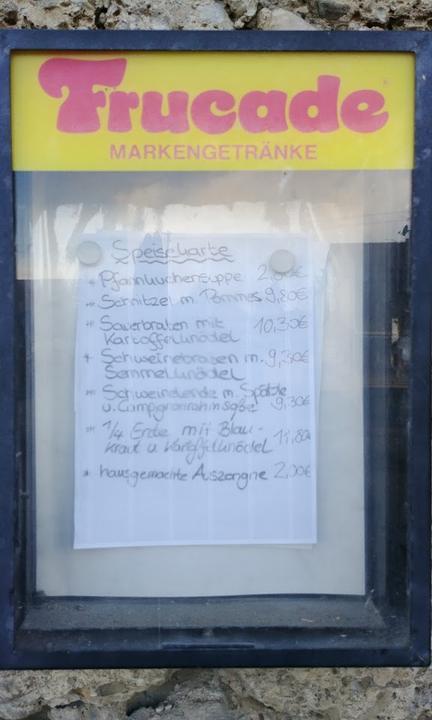 Frucade
MARKENGETRÄNKE
Speisekarte
* Pfannkuchensuppe
* Schnitzel m. Pommes 9,80€
* Sauerbraten mit 10,30€
Kartoffelknödel
* Schweinebraten m. 9,30€
Semmelknödel
* Schweinelende m. Spätzle
u. Champignonrahmsoße 9,30€
* 1/4 Ente mit Blau-
kraut u. Kartoffelknödel 11,80€
* hausgemachte Auszogne 2,00€